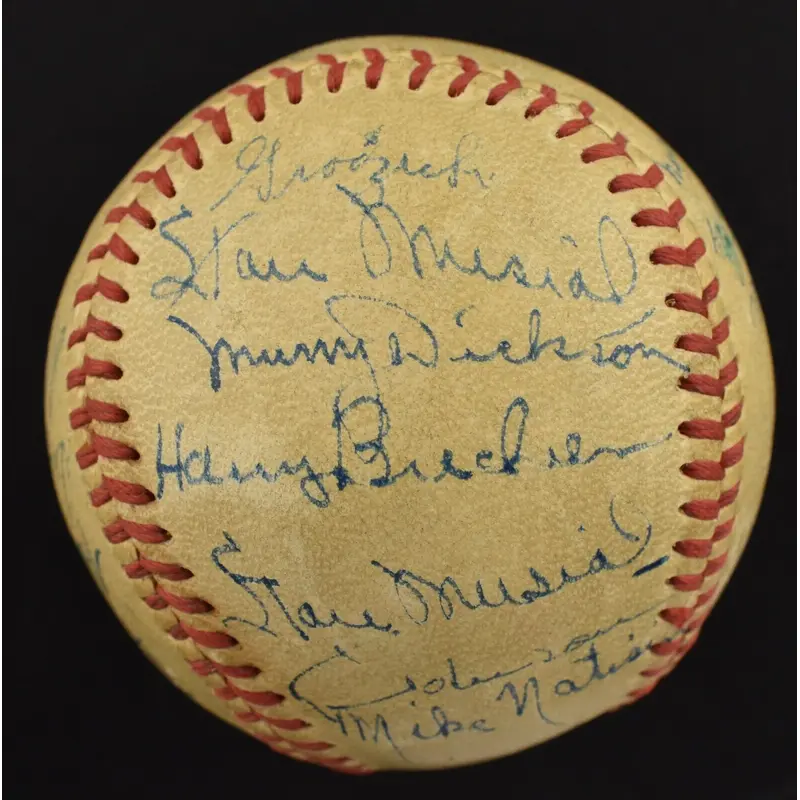 Grodzich
Stan Musial
Murry Dickson
Harry Brecheen
Stan Musial
Mike Natisin